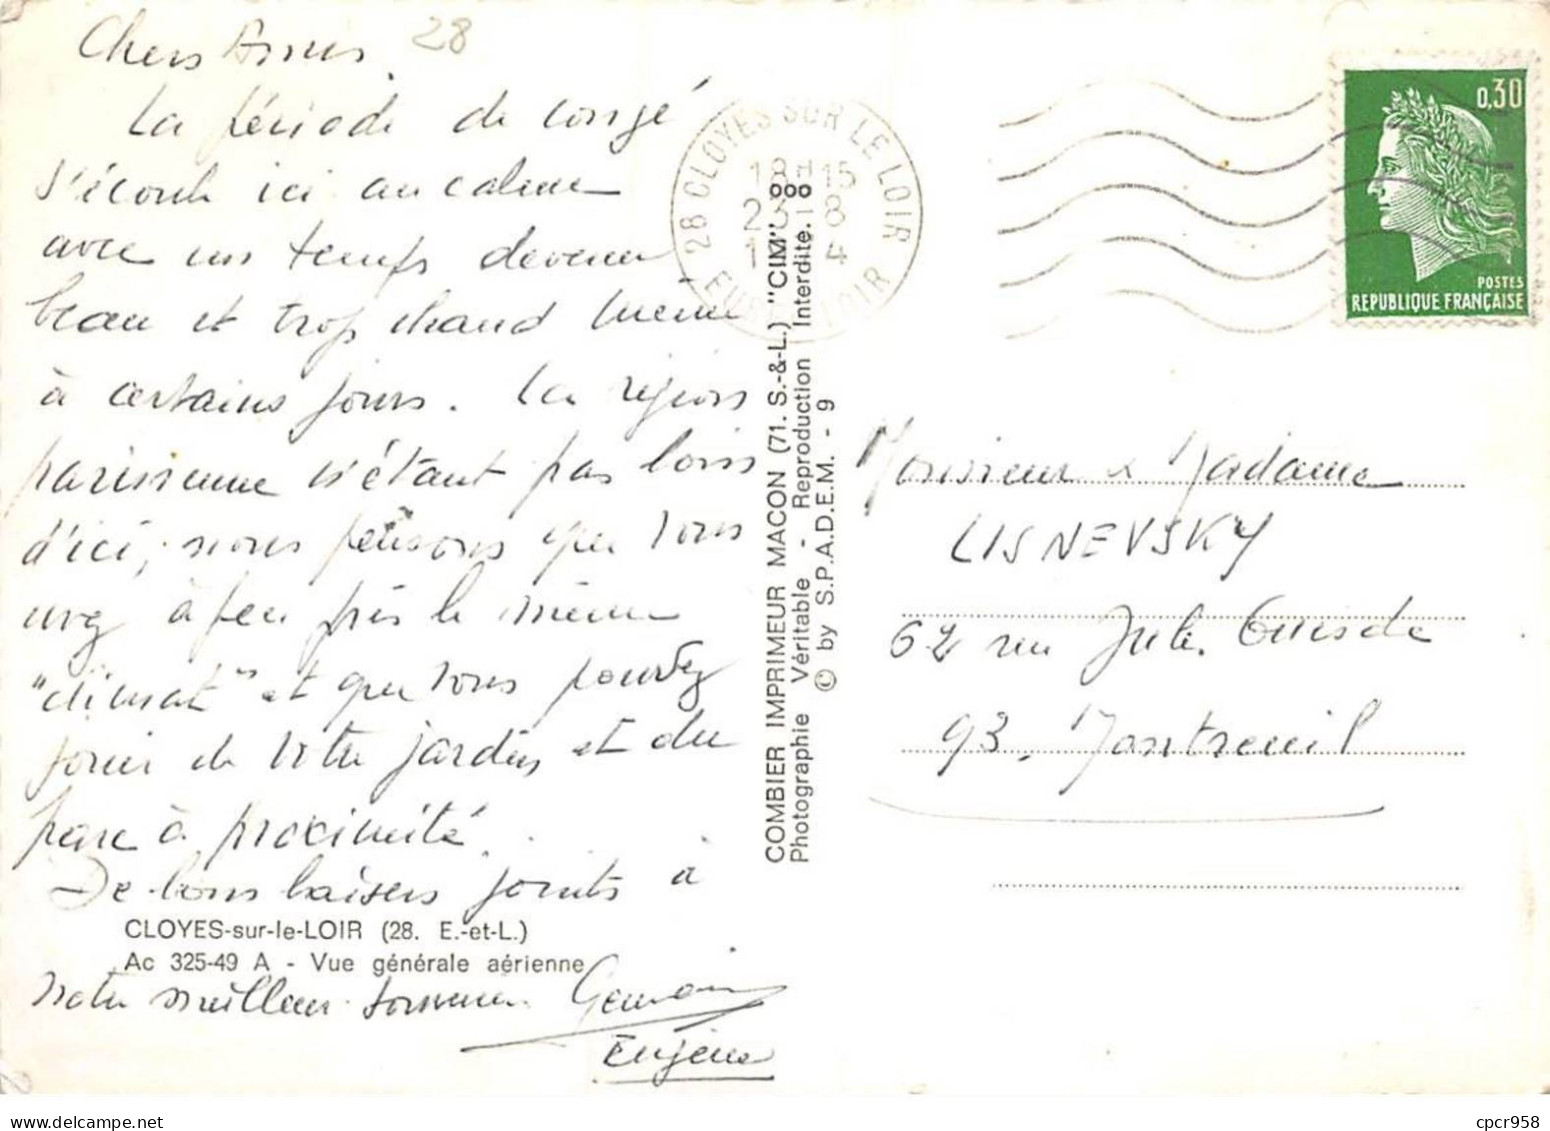 Chers Amis. 28
La période de congé
s'écoule ici au calme
avec un temps devenu
beau et trop chaud même
à certains jours. La région
parisienne n'étant pas loin
d'ici, nous pensons que vous
avez à peu près le même
"climat" et que vous pouvez
jouir de votre jardin et du
parc à proximité.
De bons baisers joints à
CLOYES-sur-le-LOIR (28. E.-et-L.)
Ac 325-49 A - Vue générale aérienne
notre meilleur souvenir. Germain
Eugène
COMBIER IMPRIMEUR MACON (71. S.-&-L.) "CIM"
Photographie Véritable - Reproduction Interdite.
© by S.P.A.D.E.M. - 9
28 CLOYES SUR LE LOIR
18H15
23-8
4
EURE LOIR
0,30
POSTES
REPUBLIQUE FRANÇAISE
Monsieur & Madame
LISNEVSKY
62 rue Jules Guesde
93. Montreuil
cpcr958